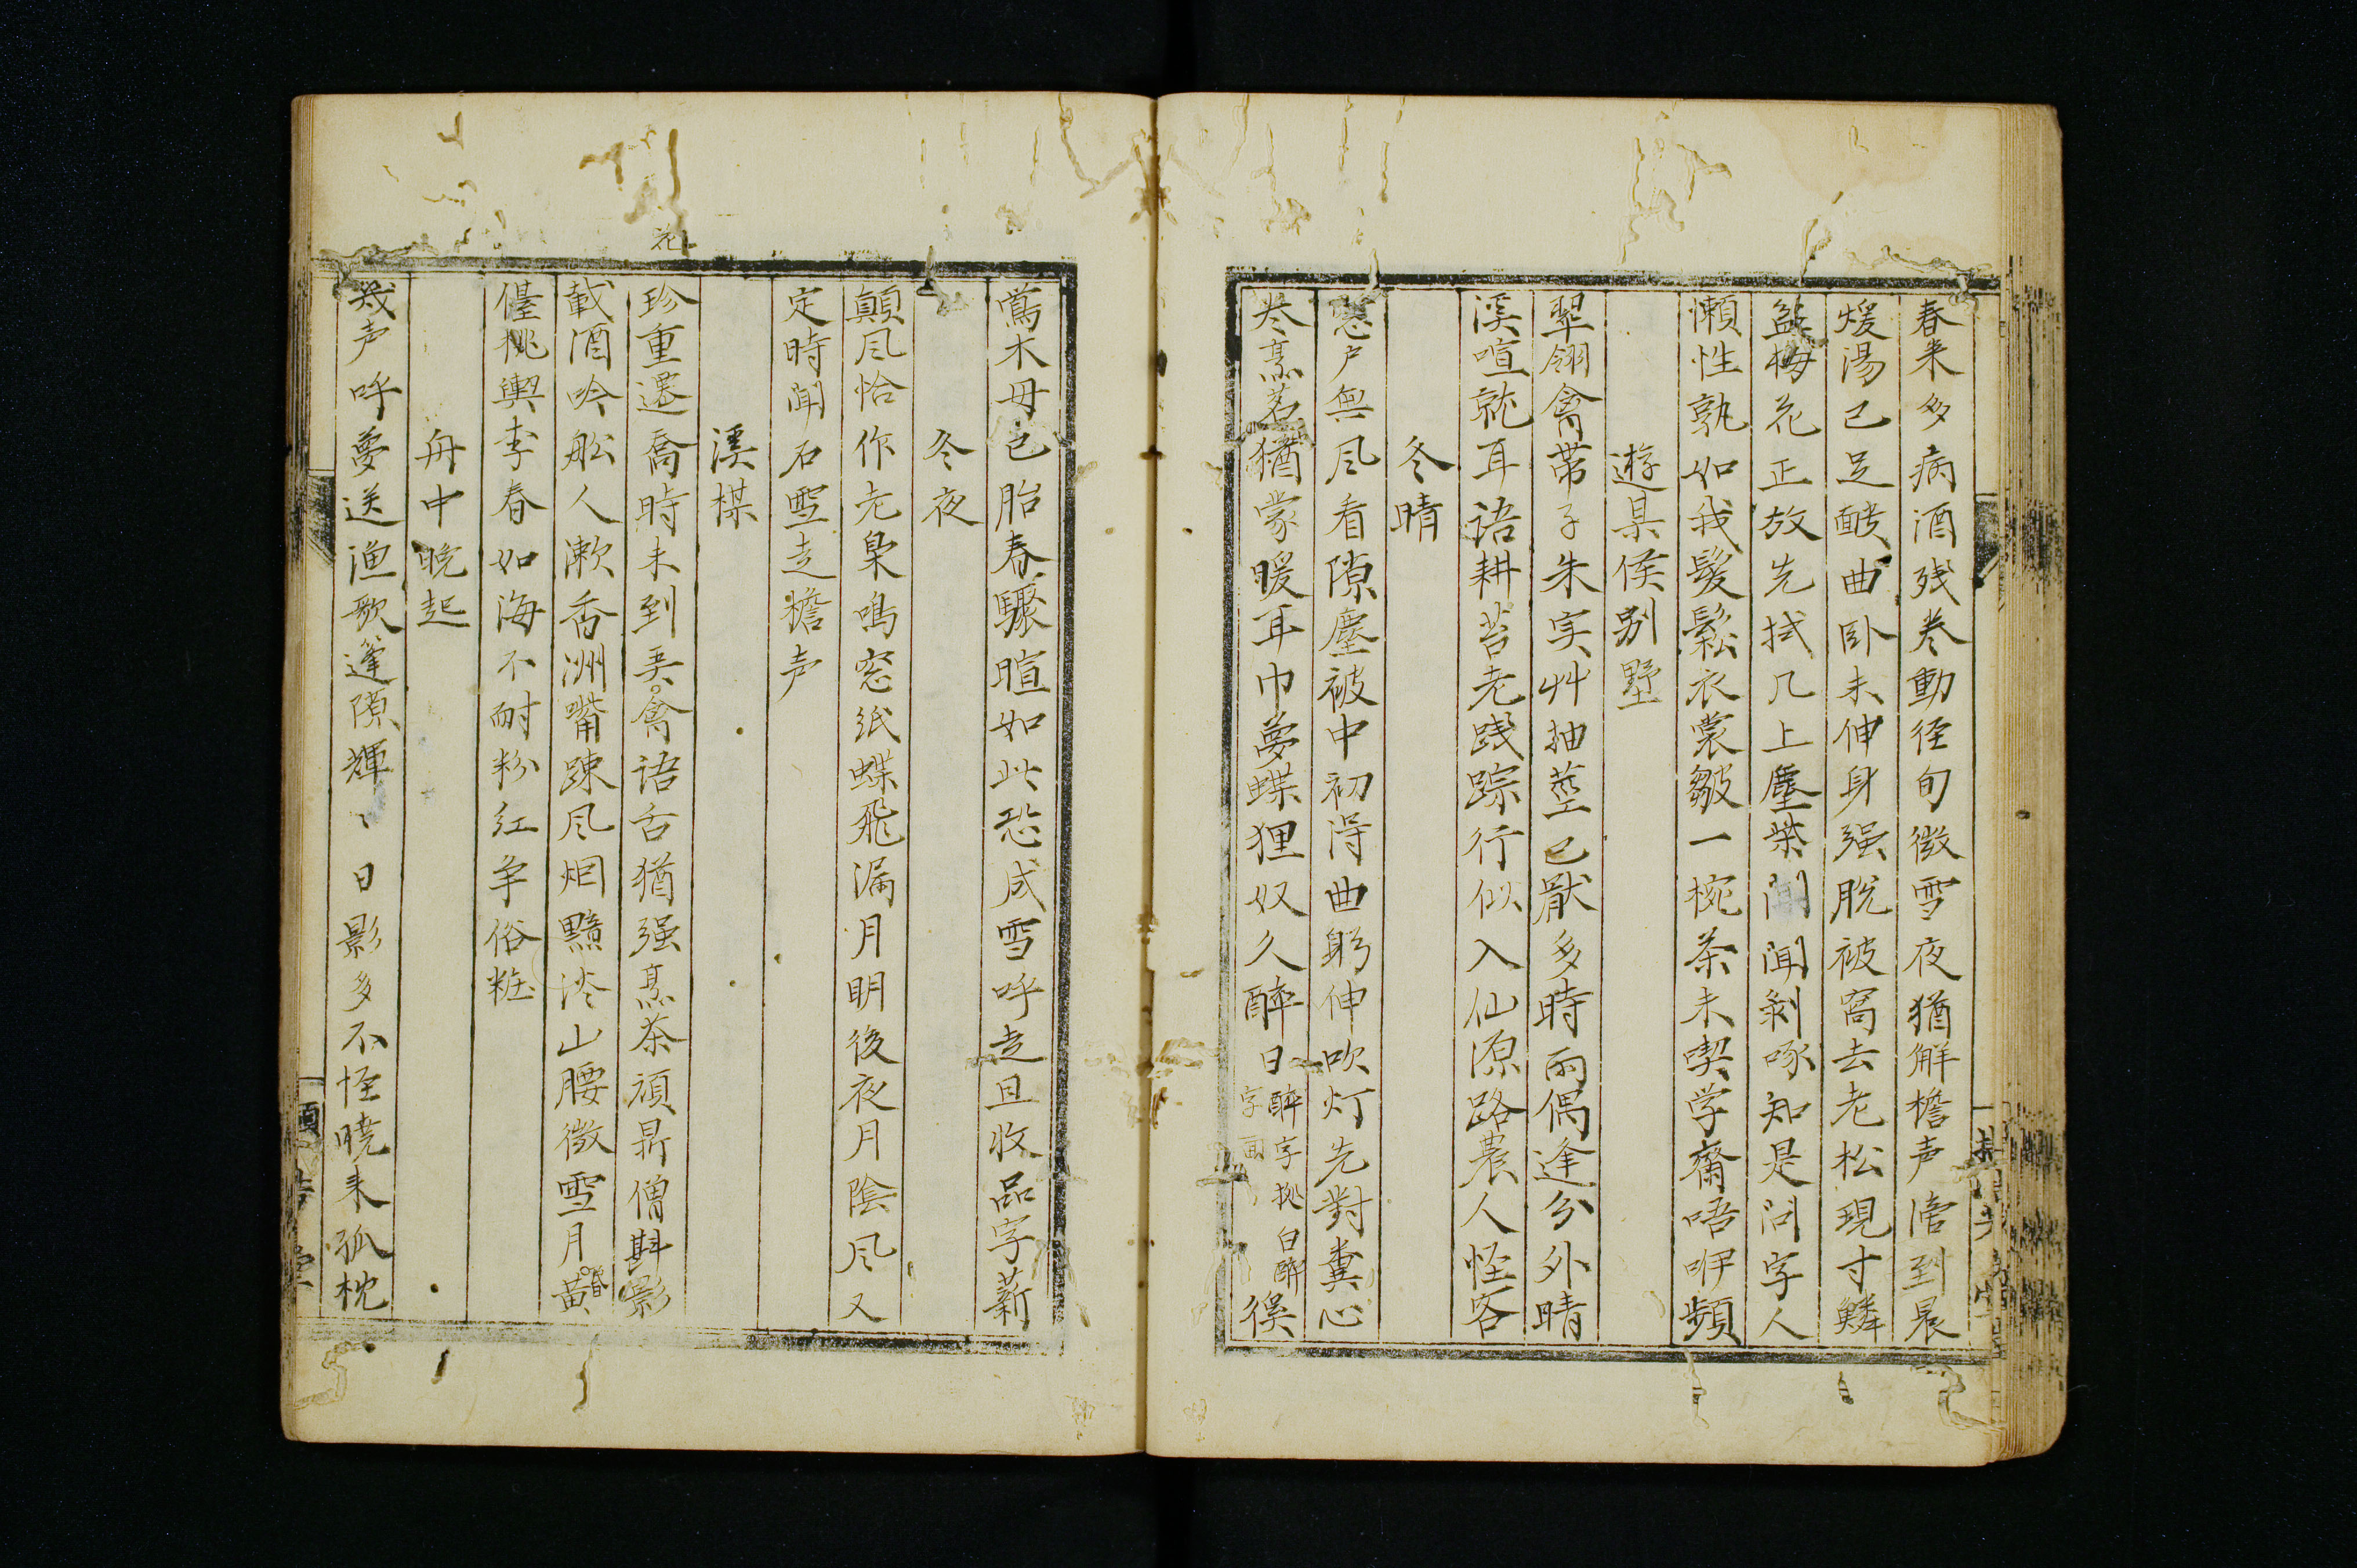 春来多病酒残巻動径旬微雪夜猶解檐声濇到晨
煖湯已足皷曲卧未伸身强脱被窩去老松現寸鱗
盆梅花正放先拭几上塵柴門聞剝啄知是问字人
懶性孰如我髪鬆衣裳皺一椀茶未喫学齋唔咿頻
遊某侯别墅
翠翎禽帯子朱实艸抽莖已厭多時雨偶逢分外晴
溪喧就耳語耕苔老践踪行似入仙源路農人怪客
冬晴
窓户無风看隙塵被中初淂曲躬伸吹灯先對糞心
火烹茗猶蒙暖耳巾夢蝶狸奴久醉日
醉字拠白醉
字面
徯
鶯木母已胎春驟暄如此恐成雪呼走且收品字薪
冬夜
顛风恰作老梟鳴窓紙蝶飛漏月明後夜月陰风又
定時闻石雪走檐声
溪楳
花
珍重還喬時未到吴禽語舌猶强烹茶頑鼎僧斟影
載酒吟舩人漱香洲嘴踈风烟黯淡山腰微雪月黄昏
僮桃輿李春如海不耐粉红争俗粧
舟中晩起
幾声呼夢送渔歌篷隙輝〻日影多不怪曉来孤枕